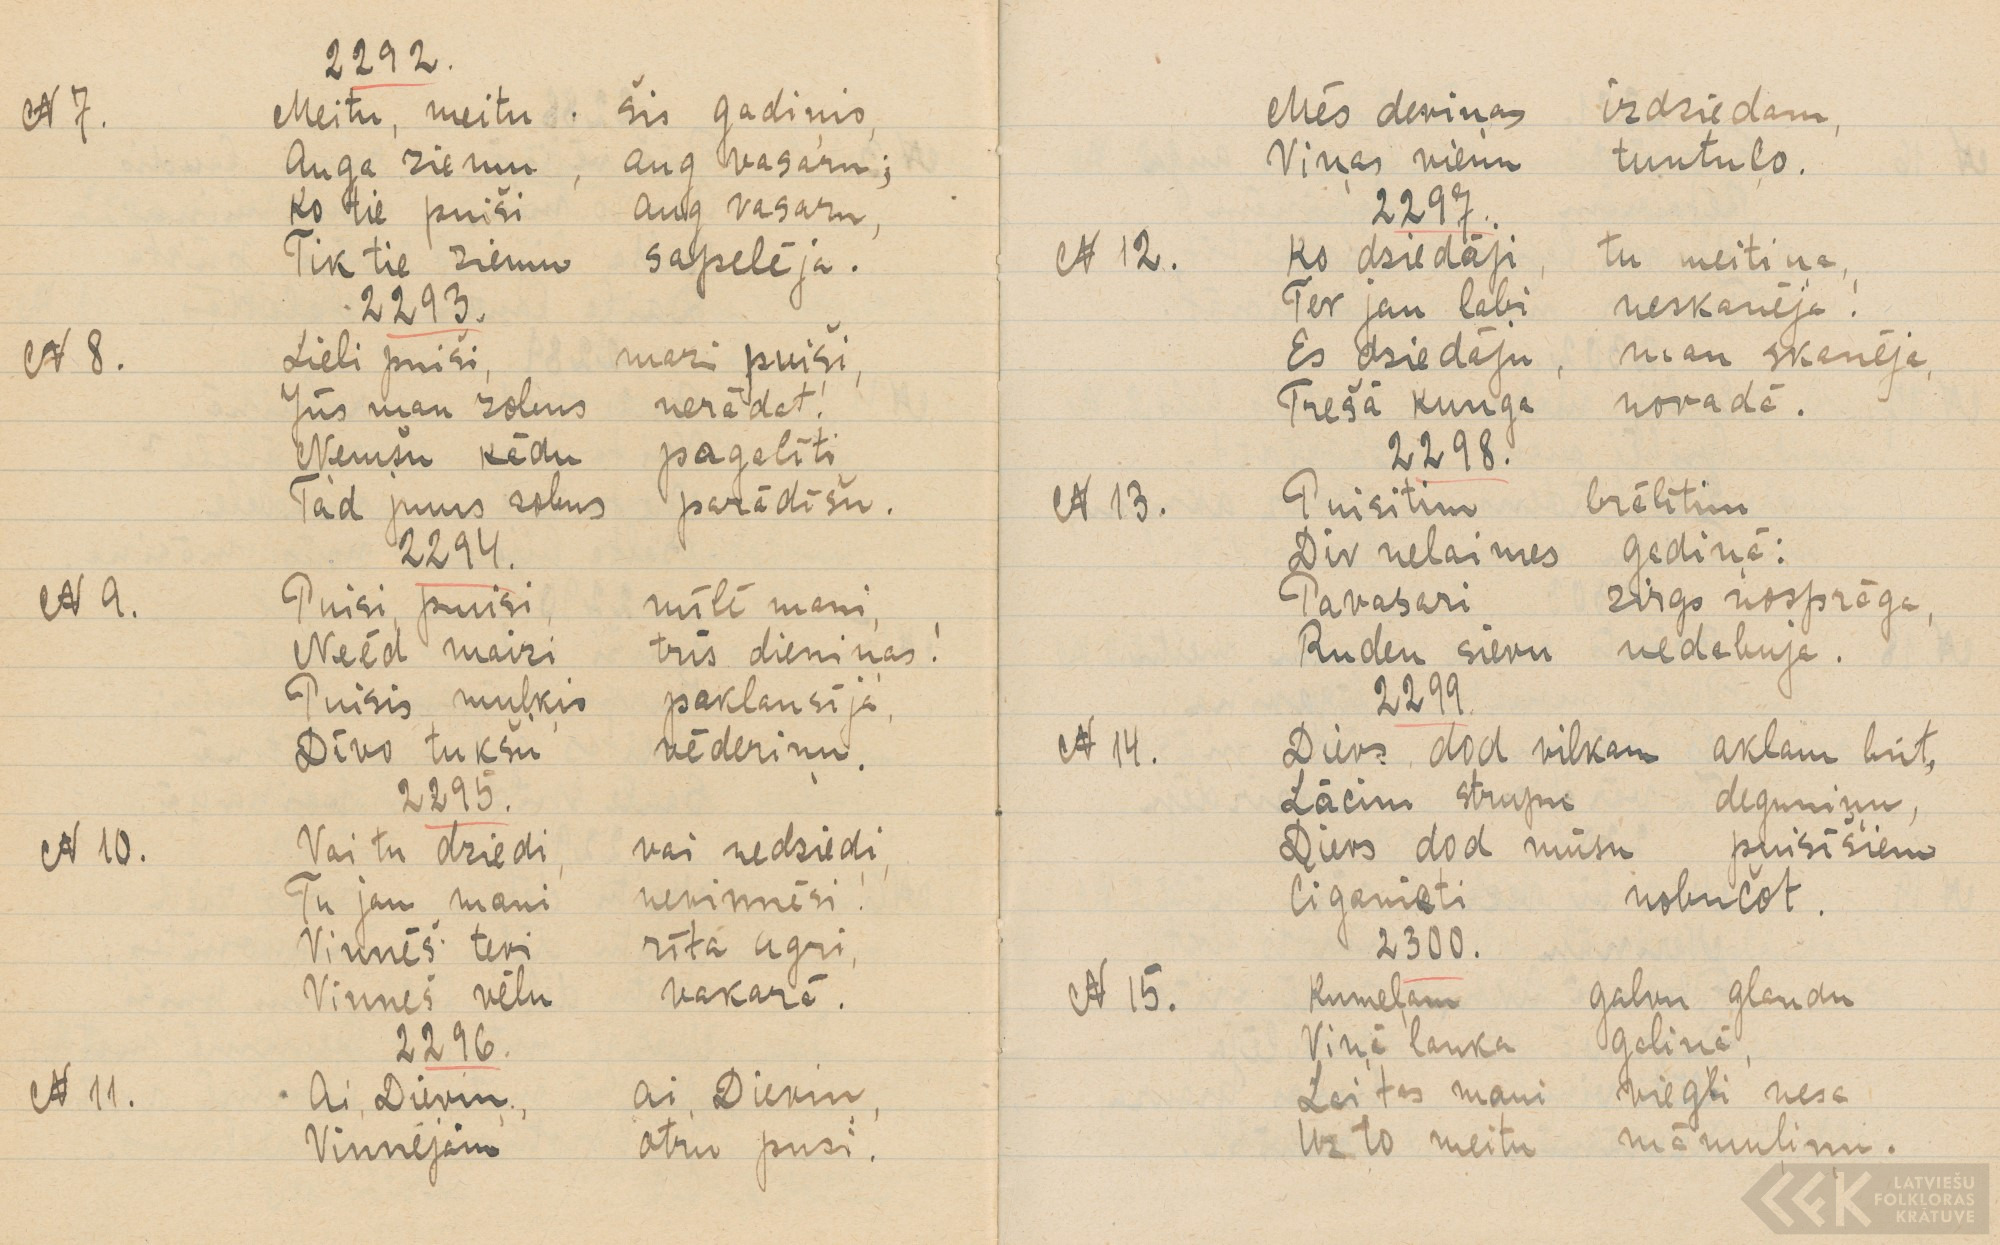 2292.
№ 7. Meitu, meitu šis gadiņis,
Auga ziemu, aug vasaru;
Ko tie puiši aug vasaru,
Tik tie ziemu sapelēja.
2293.
№ 8. Lieli puiši, mazi puiši,
Jūs man zobus nerādat!
Ņemšu kādu pagalīti
Tad juus zobus parādīšu.
2294.
№ 9. Puisi, puisi, mīlē mani,
Neēd maizi trīs dieniņas!
Puisis muļķis paklausīja,
Dīvo tukšu vēderiņu.
2295.
№ 10. Vai tu dziedi, vai nedziedi,
Tu jau mani nevinnēsi!
Vinnēš tevi rīta agri,
Vinneš vēlu vakarā.
2296.
№ 11. Ai, Dieviņ, ai, Dieviņ,
Vinnējām otru pusi.
Mēs deviņas izdziedam,
Viņas vienu tuntuļo.
2297.
№ 12. Ko dziedāji, tu meitiņa,
Tev jau labi neskanēja!
Es dziedāju, man skanēja,
Trešā kunga novadā.
2298.
№ 13. Puisītim brālītim
Div nelaimes gadiņā:
Pavasari zirgs nosprāga,
Ruden sievu nedabuja.
2299.
№ 14. Dievs dod vilkam aklam būt,
Lācim strupu deguniņu,
Dievs dod mūsu puisīšiem
Ciganieti nobučot.
2300.
№ 15. Kumeļam galvu glaudu
Viņā lauka galiņā,
Lai tas mani viegli nesa
Uz to meitu māmuliņu.
LATVIEŠU
FOLKLORAS
KRĀTUVE